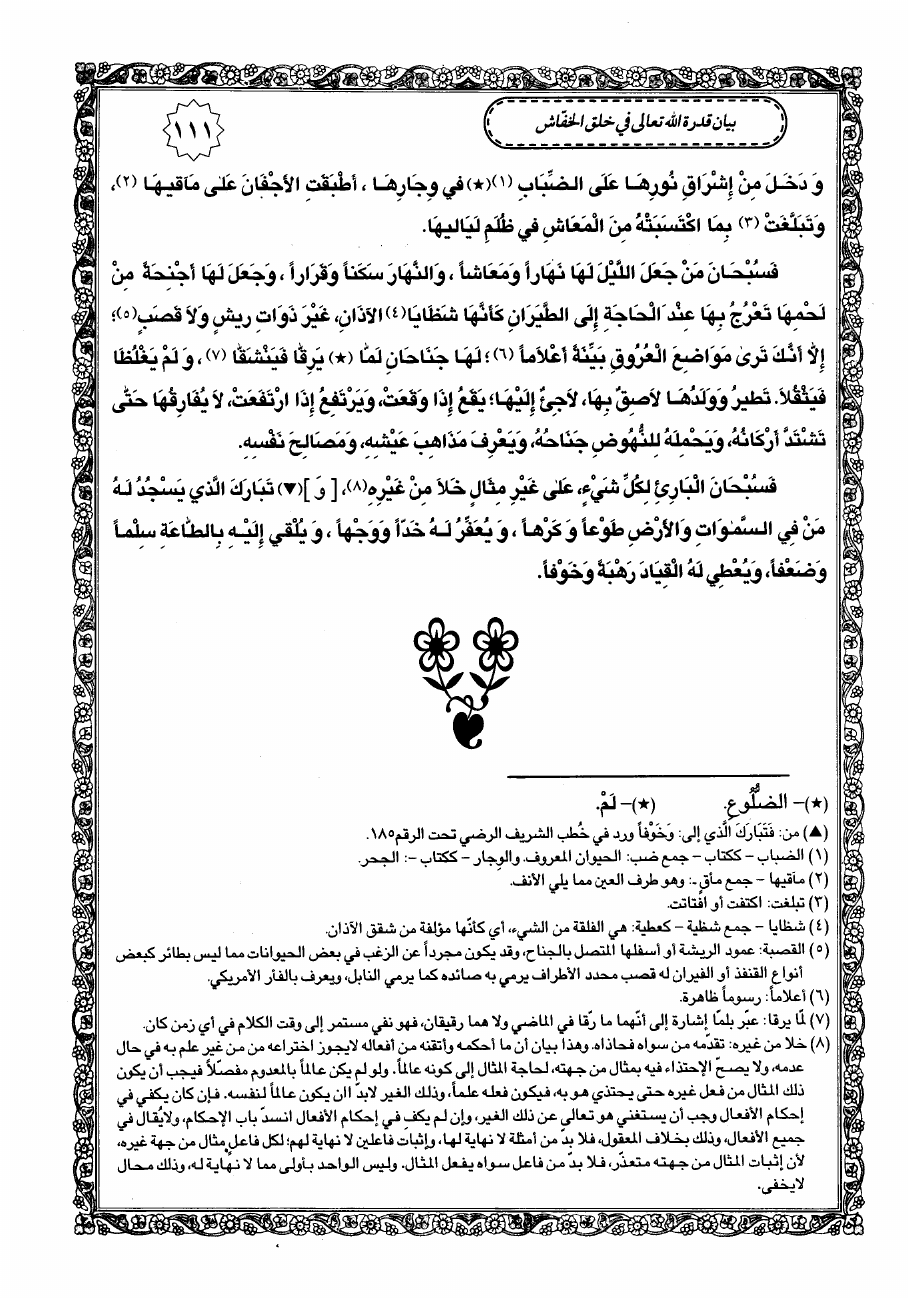 بيان قدرة الله تعالى في خلق الخفّاش
١١١
وَ دَخَلَ مِنْ إِشْرَاقِ نُورِهَا عَلَى الضِّبَابِ (١)(★) في وِجَارِهَا ، أَطْبَقَتِ الأَجْفَانَ عَلىٰ مَآقيهَا (٢)،
وَتَبَلَّغَتْ (٣) بِمَا اكْتَسَبَتْهُ مِنَ الْمَعَاشِ في ظُلَمِ لَيَاليهَا.
فَسُبْحَانَ مَنْ جَعَلَ اللَّيْلَ لَهَا نَهَاراً وَمَعَاشاً ، وَالنَّهَارَ سَكَناً وَقَرَاراً ، وَجَعَلَ لَهَا أَجْنِحَةً مِنْ
لَحْمِهَا تَعْرُجُ بِهَا عِنْدَ الْحَاجَةِ إِلَى الطَّيَرَانِ كَأَنَّهَا شَظَايَا(٤) الآذَانِ، غَيْرَ ذَوَاتِ ريشٍ وَلاَ قَصَبٍ(٥)؛
إِلاّٰ أَنَّكَ تَرىٰ مَوَاضِعَ الْعُرُوقِ بَيِّنَةً أَعْلاَماً (٦)؛ لَهَا جَنَاحَانِ لَمّٰا (★) يَرِقّٰا فَيَنْشَقّٰا (٧) ، وَ لَمْ يَغْلُظَا
فَيَثْقُلاَ. تَطيرُ وَوَلَدُهَا لاَصِقٌ بِهَا، لاَجِئٌ إِلَيْهَا؛ يَقَعُ إِذَا وَقَعَتْ، وَيَرْتَفِعُ إِذَا ارْتَفَعَتْ، لاَ يُفَارِقُهَا حَتّٰى
تَشْتَدَّ أَرْكَانُهُ، وَيَحْمِلَهُ لِلنُّهُوضِ جَنَاحُهُ، وَيَعْرِفَ مَذَاهِبَ عَيْشِهِ، وَمَصَالِحَ نَفْسِهِ.
فَسُبْحَانَ الْبَارِئِ لِكُلِّ شَيْءٍ، عَلىٰ غَيْرِ مِثَالٍ خَلاَ مِنْ غَيْرِهِ(٨)، [ وَ ](▼) تَبَارَكَ الَّذي يَسْجُدُ لَهُ
مَنْ فِي السَّمٰوَاتِ وَالأَرْضِ طَوْعاً وَ كَرْهاً ، وَ يُعَفِّرُ لَهُ خَدّاً وَوَجْهاً ، وَ يُلْقي إِلَيْهِ بِالطَّاعَةِ سِلْماً
وَضَعْفاً، وَيُعْطي لَهُ الْقِيَادَ رَهْبَةً وَخَوْفاً.
(★)– الضُّلُوعِ. (★)– لَمْ.
(▲) من: فَتَبَارَكَ الَّذي إلى: وَخَوْفاً ورد في خُطب الشريف الرضي تحت الرقم ١٨٥.
(١) الضباب – ككتاب – جمع ضب: الحيوان المعروف. والوِجار – ككتاب –: الجحر.
(٢) مآقيها – جمع مأق -: وهو طرف العين مما يلي الأنف.
(٣) تبلغت: اكتفت أو افتاتت.
(٤) شظايا – جمع شظية – كعطية: هي الفلقة من الشيء، أي كأنّها مؤلفة من شقق الآذان.
(٥) القصبة: عمود الريشة أو أسفلها المتصل بالجناح، وقد يكون مجرداً عن الزغب في بعض الحيوانات مما ليس بطائر كبعض
أنواع القنفذ أو الفيران له قصب محدد الأطراف يرمي به صائده كما يرمي النابل، ويعرف بالفأر الأمريكي.
(٦) أعلاماً: رسوماً ظاهرة.
(٧) لمّا يرقا: عبّر بلمّا إشارة إلى أنّهما ما رقّا في الماضي ولا هما رقيقان، فهو نفي مستمر إلى وقت الكلام في أي زمن كان.
(٨) خلا من غيره: تقدّمه من سواه فحاذاه. وهذا بيان أن ما أحكمه وأتقنه من أفعاله لايجوز اختراعه من من غير علم به في حال
عدمه، ولا يصحّ الإحتذاء فيه بمثال من جهته، لحاجة المثال إلى كونه عالماً. ولو لم يكن عالماً بالمعدوم مفصّلاً فيجب أن يكون
ذلك المثال من فعل غيره حتى يحتذي هو به، فيكون فعله علماً، وذلك الغير لابدّ اان يكون عالماً لنفسه. فإن كان يكفي في
إحكام الأفعال وجب أن يستغني هو تعالى عن ذلك الغير، وإن لم يكفِ في إحكام الأفعال انسدّ باب الإحكام، ولايُقال في
جميع الأفعال، وذلك بخلاف المعقول، فلا بدّ من أمثلة لا نهاية لها، وإثبات فاعلين لا نهاية لهم؛ لكل فاعلٍ مثال من جهة غيره،
لأن إثبات المثال من جهته متعذّر، فلا بدّ من فاعل سواه يفعل المثال. وليس الواحد بأولى مما لا نهاية له، وذلك محال
لايخفى.